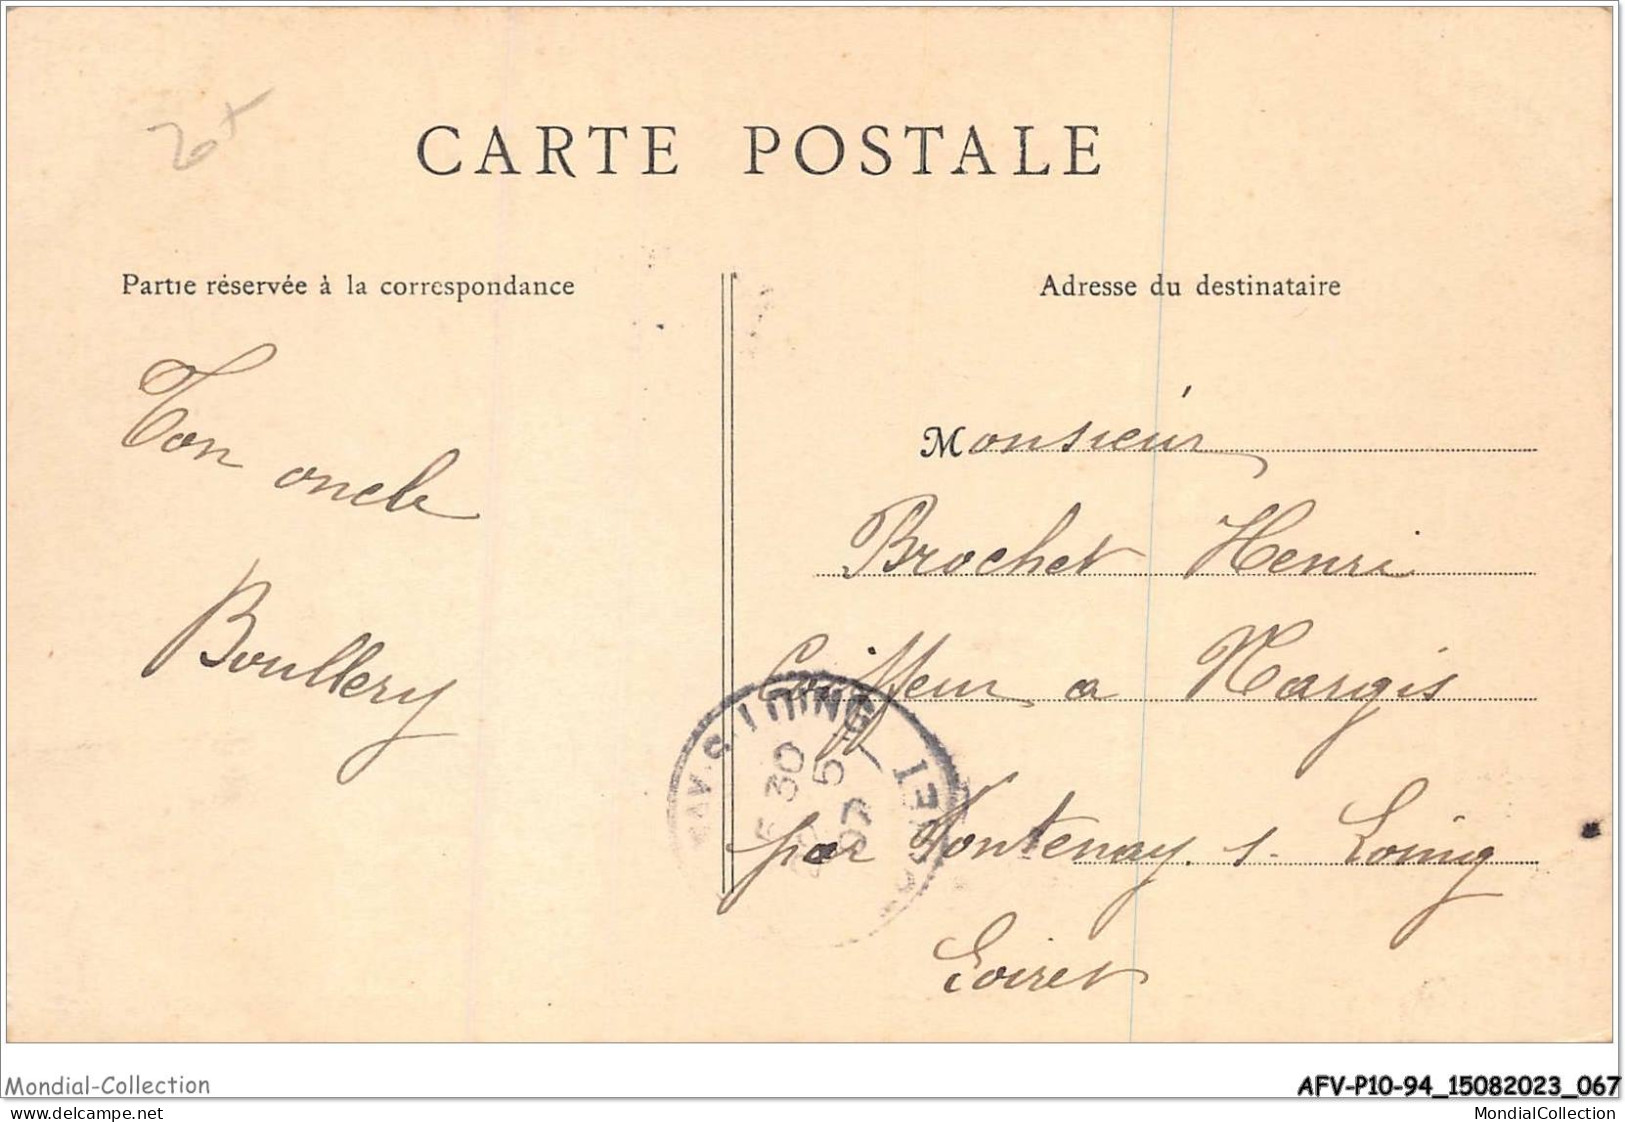 CARTE POSTALE
Partie réservée à la correspondance
Adresse du destinataire
Ton oncle
Boullery
Monsieur
Brochet Henri
Coiffeur a Nargis
par Fontenay s. Loing
Loiret
S LOING
30
5
07
Mondial-Collection
AFV-P10-94_15082023_067
www.delcampe.net
MondialCollection